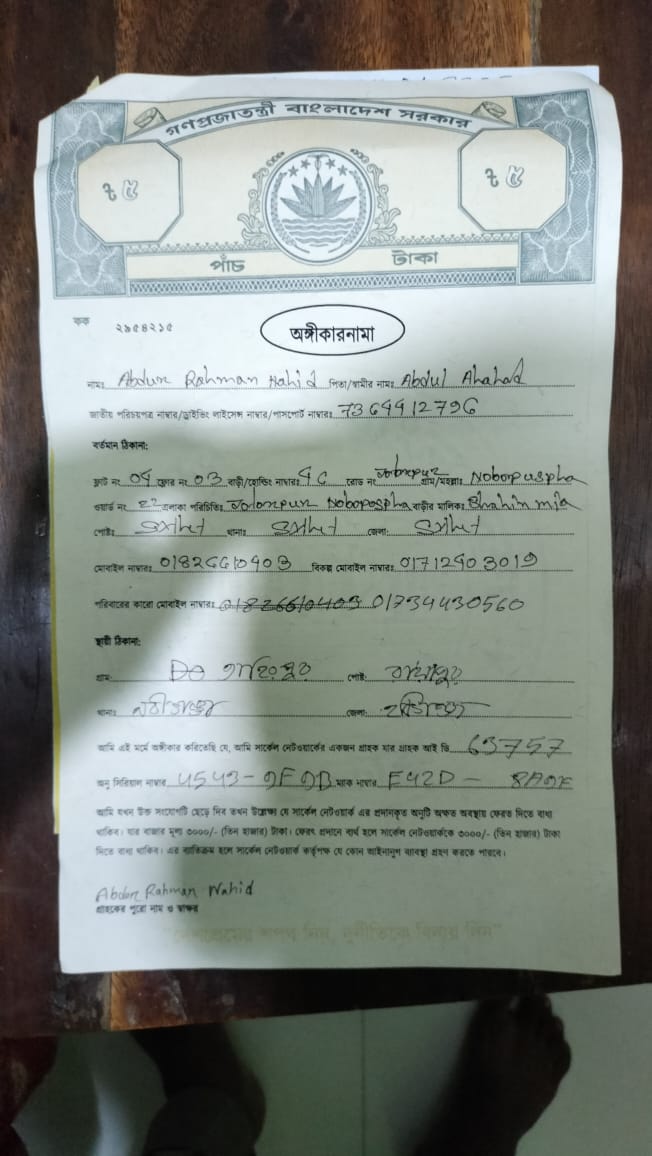 গণপ্রজাতন্ত্রী বাংলাদেশ সরকার
৳ ৫ ৳ ৫
পাঁচ টাকা
কক ২৯৫৪২১৫
অঙ্গীকারনামা
নামঃ Abdur Rahman Nahid পিতা/স্বামীর নামঃ Abdul Ahahad
জাতীয় পরিচয়পত্র নাম্বার/ড্রাইভিং লাইসেন্স নাম্বার/পাসপোর্ট নাম্বারঃ 7364912796
বর্তমান ঠিকানা:
ফ্লাট নং 04 ফ্লোর নং 03 বাড়ী/হোল্ডিং নাম্বারঃ 4C রোড নং গ্রাম/মহল্লাঃ Noborpuspha
ওয়ার্ড নং 22 এলাকা পরিচিতিঃ Jolompur Nobopospha বাড়ীর মালিকঃ Shahin mia
পোষ্টঃ Sylhet থানাঃ Sylhet জেলা: Sylhet
মোবাইল নাম্বারঃ 01826610403 বিকল্প মোবাইল নাম্বারঃ 01712903019
পরিবারের কারো মোবাইল নাম্বারঃ 01826610403 01734430560
স্থায়ী ঠিকানা:
গ্রাম: পোষ্ট:
থানাঃ নবীগঞ্জ জেলা: হবিগঞ্জ
আমি এই মর্মে অঙ্গীকার করিতেছি যে, আমি সার্কেল নেটওয়ার্কের একজন গ্রাহক যার গ্রাহক আই ডি 63757
অনু সিরিয়াল নাম্বার 4543-9F9B ম্যাক নাম্বার E42D - 8A9E
আমি যখন উক্ত সংযোগটি ছেড়ে দিব তখন উল্লেক্ষ্য যে সার্কেল নেটওয়ার্ক এর প্রদানকৃত অনুটি অক্ষত অবস্থায় ফেরত দিতে বাধ্য
থাকিব। যার বাজার মূল্য ৩০০০/- (তিন হাজার) টাকা। ফেরৎ প্রদানে ব্যর্থ হলে সার্কেল নেটওয়ার্ককে ৩০০০/- (তিন হাজার) টাকা
দিতে বাধ্য থাকিব। এর ব্যতিক্রম হলে সার্কেল নেটওয়ার্ক কর্তৃপক্ষ যে কোন আইনানুগ ব্যবস্থা গ্রহণ করতে পারবে।
Abdur Rahman Nahid
গ্রাহকের পুরো নাম ও স্বাক্ষর
"দেশপ্রেমের শপথ নিন, দুর্নীতিকে বিদায় দিন"